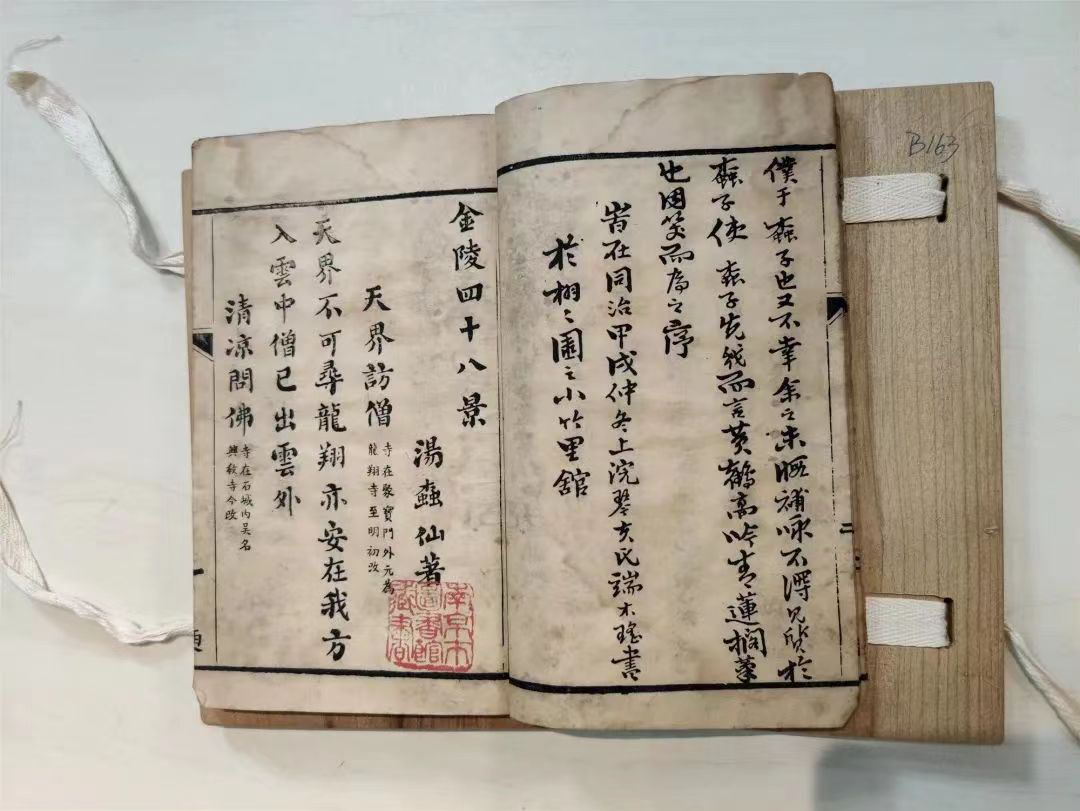 僕于蟸子也又不幸余之未暇補咏不得見欣於
蟸子使蟸子先我而言黃鶴高吟青蓮擱筆
也因笑而為之序
岩在同治甲戌仲冬上浣琴亥氏端木瑤書
於栩栩園之小竹里舘
金陵四十八景
湯蟸仙著
天界訪僧
寺在聚寶門外元為
龍翔寺至明初改
天界不可尋龍翔亦安在我方
入雲中僧已出雲外
清凉問佛
寺在石城內吳名
興教寺今改
一
南京市
圖書館
藏書章
B163